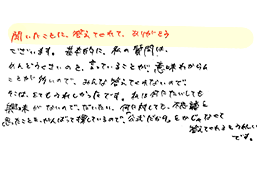 聞いたことに、答えてくれて、ありがとう
ございます。基本的に、私の質問は、
めんどうくさいのと、言っていることが、意味わからん
ことが多いので、みんな答えてくれないので、
そこは、とてもうれしかったです。私は何にたいしても
興味がないので、だいたい、何に対しても、不思議に
思ったことを、がんばって探しているので、公式だけ
じゃなくて
答えてくれるとうれしい
です。